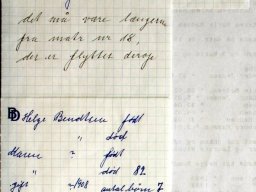 det må være længere
fra matr nr 18,
der er flyttet derop
Helge Bendtsen født
" død
Maren " født
død 82
gift 1908 antal børn 7